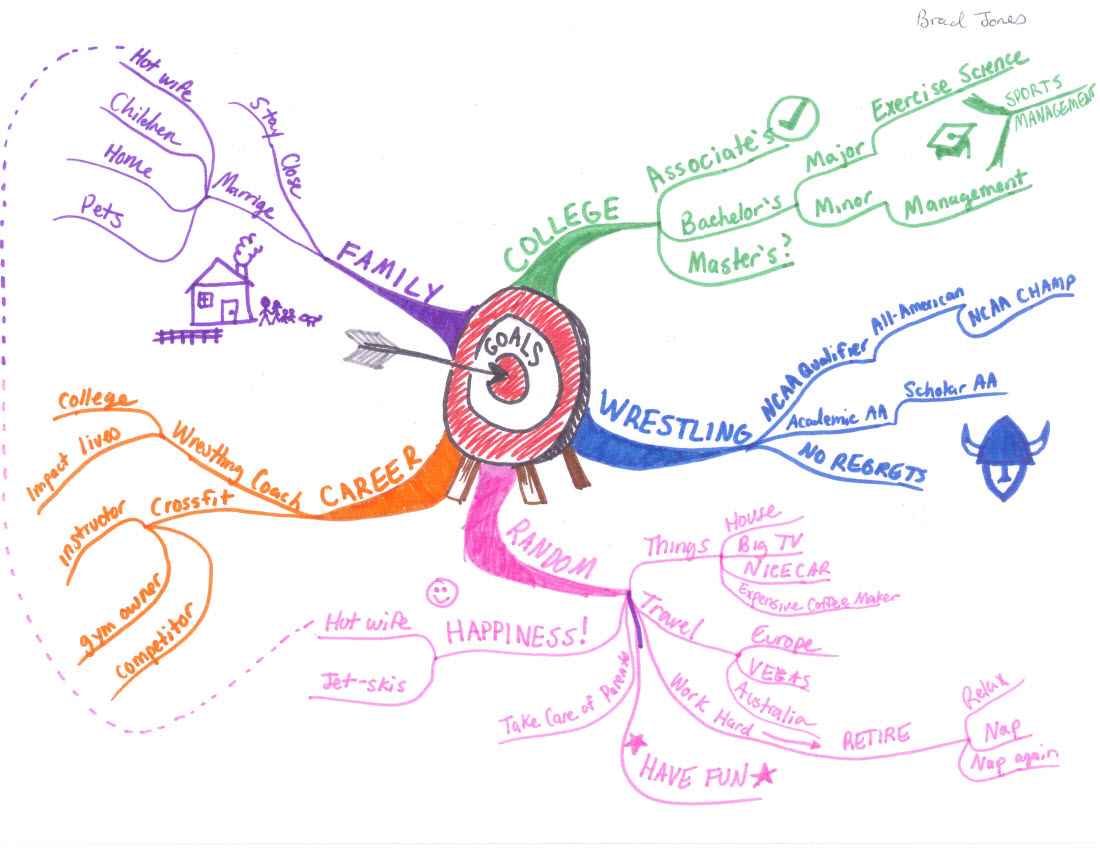 Brad Jones
GOALS
COLLEGE
Associate's
Bachelor's
Major
Exercise Science
SPORTS
MANAGEMENT
Minor
Management
Master's?
WRESTLING
NCAA Qualifier
All-American
NCAA CHAMP
Academic AA
Scholar AA
NO REGRETS
RANDOM
Things
House
Big TV
NICE CAR
Expensive Coffee Maker
Travel
Europe
VEGAS
Australia
Work Hard
RETIRE
Relax
Nap
Nap again
HAVE FUN
Take Care of Parents
HAPPINESS!
Hot wife
Jet-skis
CAREER
Wrestling Coach
College
Impact lives
Crossfit
instructor
gym owner
competitor
FAMILY
Stay Close
Marrige
Hot wife
Children
Home
Pets